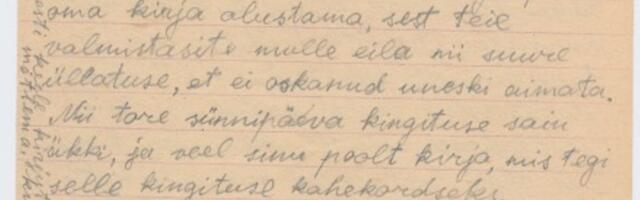 oma kirja alustama, sest Teie
valmistasite mulle eila nii suure
üllatuse, et ei oskanud uneski aimata.
Nii tore sünnipäeva kingituse sain
äkki, ja veel sinu poolt kirja, mis tegi
selle kingituse kahekordseks